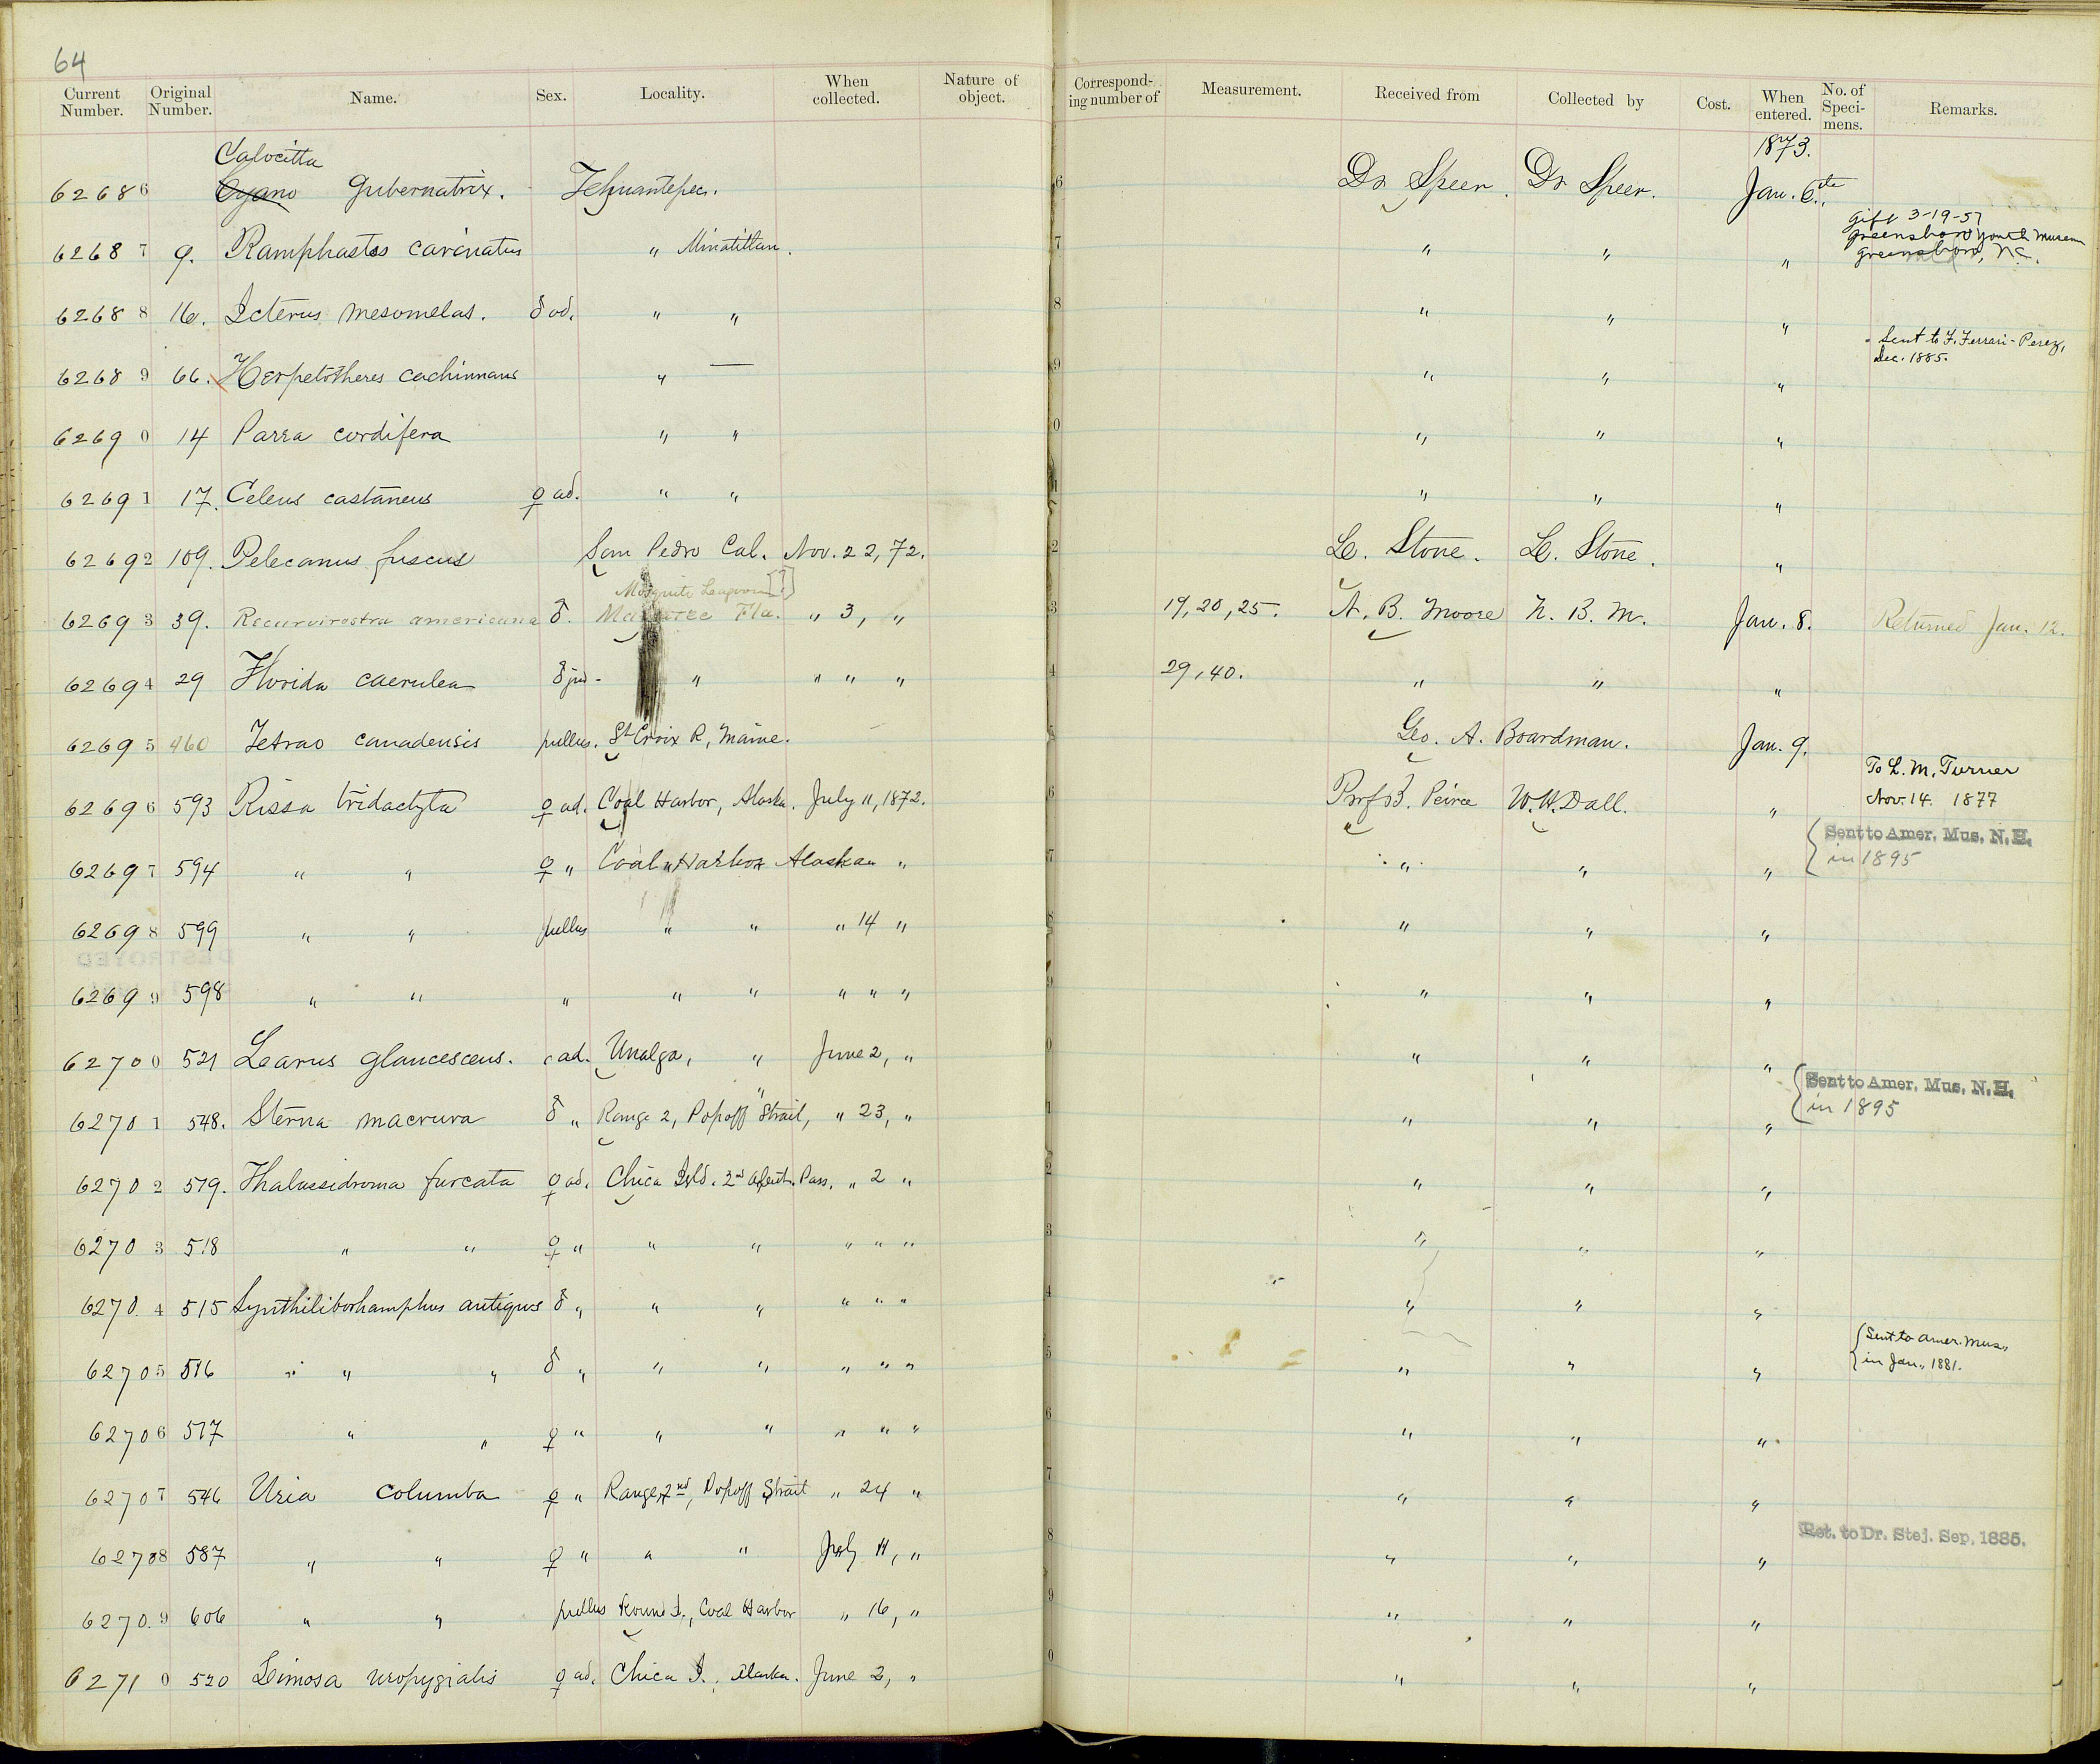 64
Current Number. Original Number. Name. Sex. Locality. When collected. Nature of object. Correspond-ing number of Measurement. Received from Collected by Cost. When entered. No. of Speci-mens. Remarks.
1873.
Calocitta
62686 Cyano gubernatrix. Tehuantepec. 6 Dr Speer. Dr Speer. Jan. 6th
Gift 3-19-57
Greensboro Youth Museum
Greensboro, N.C.
62687 9. Ramphastos carinatus " Minatitlan. 7 " " "
62688 16. Icterus mesomelas. ♂ ad. " " 8 " " "
Sent to F. Ferrari-Perez,
Dec. 1885.
62689 66. Herpetotheres cachinnans " — 9 " " "
62690 14 Parra cordifera " " 0 " " "
62691 17. Celeus castaneus ♀ ad. " " 1 " " "
62692 109. Pelecanus fuscus San Pedro Cal. Nov. 22, 72. 2 L. Stone. L. Stone. "
Mosquito Lagoon [?]
62693 39. Recurvirostra americana ♂. Manatee Fla. " 3, " 3 19, 20, 25. N. B. Moore N. B. M. Jan. 8. Returned Jan. 12.
62694 29 Florida caerulea ♂ juv. " " " " 4 29, 40. " " "
62695 460 Tetrao canadensis pullus. St Croix R, Maine. 5 Geo. A. Boardman. Jan. 9.
To L. M. Turner
Nov. 14. 1877
62696 593 Rissa tridactyla ♀ ad. Coal Harbor, Alaska. July 11, 1872. 6 Prof B. Peirce W. H. Dall. "
Sent to Amer. Mus. N. H.
in 1895
62697 594 " " ♀ " Coal Harbor Alaska " " 7 " " "
62698 599 " " pullus " " " 14 " 8 " " "
DESTROYED
62699 598 " " " " " " " " 9 " " "
62700 521 Larus glaucescens. ad. Unalga, " June 2, " 0 " " "
Sent to Amer. Mus. N. H.
in 1895
62701 548. Sterna macrura ♂ " Range 2, Popoff Strait, " 23, " 1 " " "
62702 519. Thalassidroma furcata ♀ ad. Chica Isld. Pass. " 2 " 2 " " "
62703 518 " " ♀ " " " " " " 3 " " "
62704 515 Synthiliborhamphus antiquus ♂ " " " " " " 4 " " "
Sent to Amer. Mus.
in Jan., 1881.
62705 516 " " " ♂ " " " " " " 5 " " "
62706 517 " " ♀ " " " " " " 6 " " "
62707 546 Uria columba ♀ " Range 2nd, Popoff Strait " 24 " 7 " " "
Ret. to Dr. Stej. Sep. 1885.
62708 587 " " ♀ " " " July 11, " 8 " " "
62709 606 " " pullus Round I., Coal Harbor " 16, " 9 " " "
62710 520 Limosa uropygialis ♀ ad. Chica I., Alaska. June 2, " 0 " " "